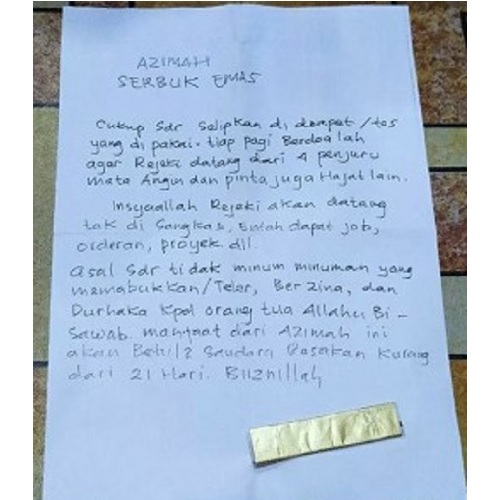 AZIMAH
SERBUK EMAS
Cukup Sdr Selipkan di dompet/tas
yang di pakai. tiap pagi Berdoa lah
agar Rejeki datang dari 4 penjuru
mata Angin dan pinta juga Hajat lain.
Insyaallah Rejeki akan datang
tak di Sangka2, Entah dapat job,
orderan, proyek dll.
Asal Sdr tidak minum minuman yang
memabukkan/Teler, Ber zina, dan
Durhaka kpd orang tua Allahu Bi-
Sawab. manfaat dari AZIMAH ini
akan Betul2 Saudara Rasakan kurang
dari 21 Hari. Biiznillah